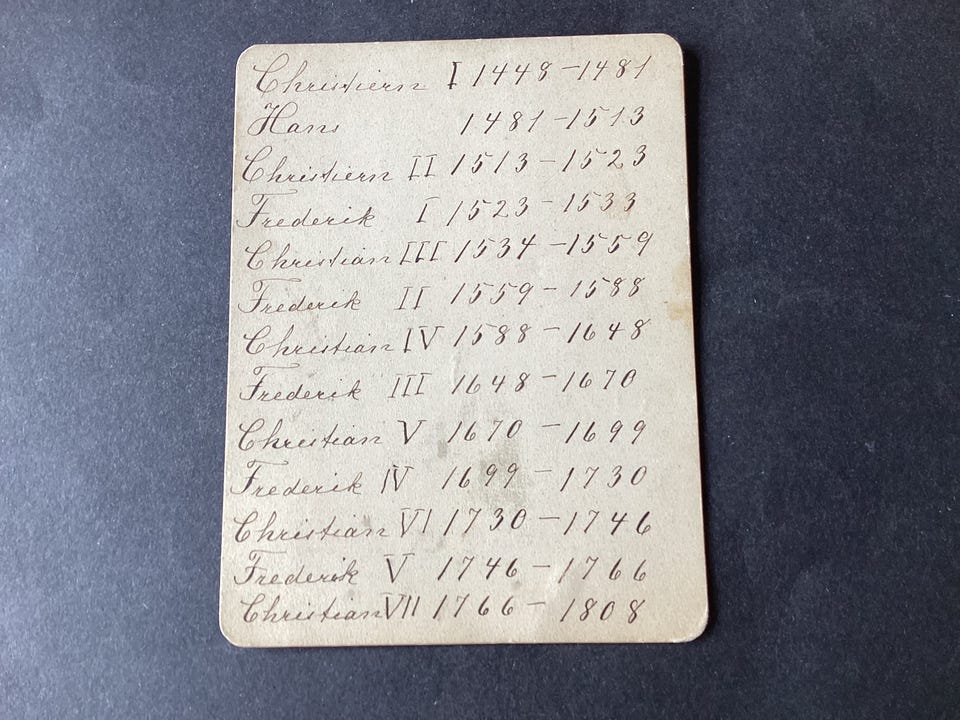 Christiern I 1448-1481
Hans 1481-1513
Christiern II 1513-1523
Frederik I 1523-1533
Christian III 1534-1559
Frederik II 1559-1588
Christian IV 1588-1648
Frederik III 1648-1670
Christian V 1670-1699
Frederik IV 1699-1730
Christian VI 1730-1746
Frederik V 1746-1766
Christian VII 1766-1808